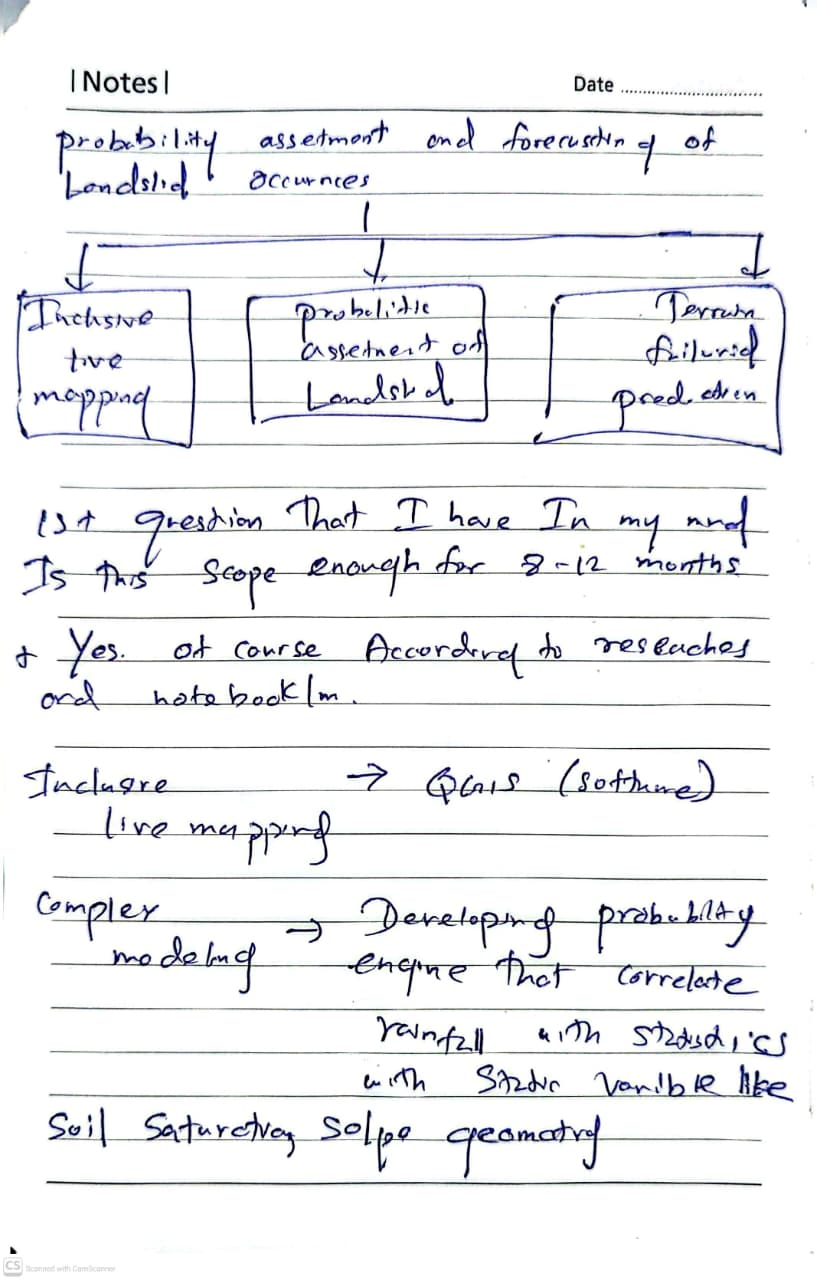 | Notes |
Date
probability assetment and forecusting of
Landslid occurnces
Inclusive
tive
mapping
probelitic
assetment of
Landslid
Terrain
failurid
prediction
1st question That I have In my mind
Is this scope enough for 8-12 months
Yes. of course According to reseaches
and notebooklm.
Inclusre → QGIS (software)
live mapping
Complex → Developing probability
modeling engine that correlate
rainfall with
with Static varible like
Soil Saturation solpe geomatry
CS Scanned with CamScanner